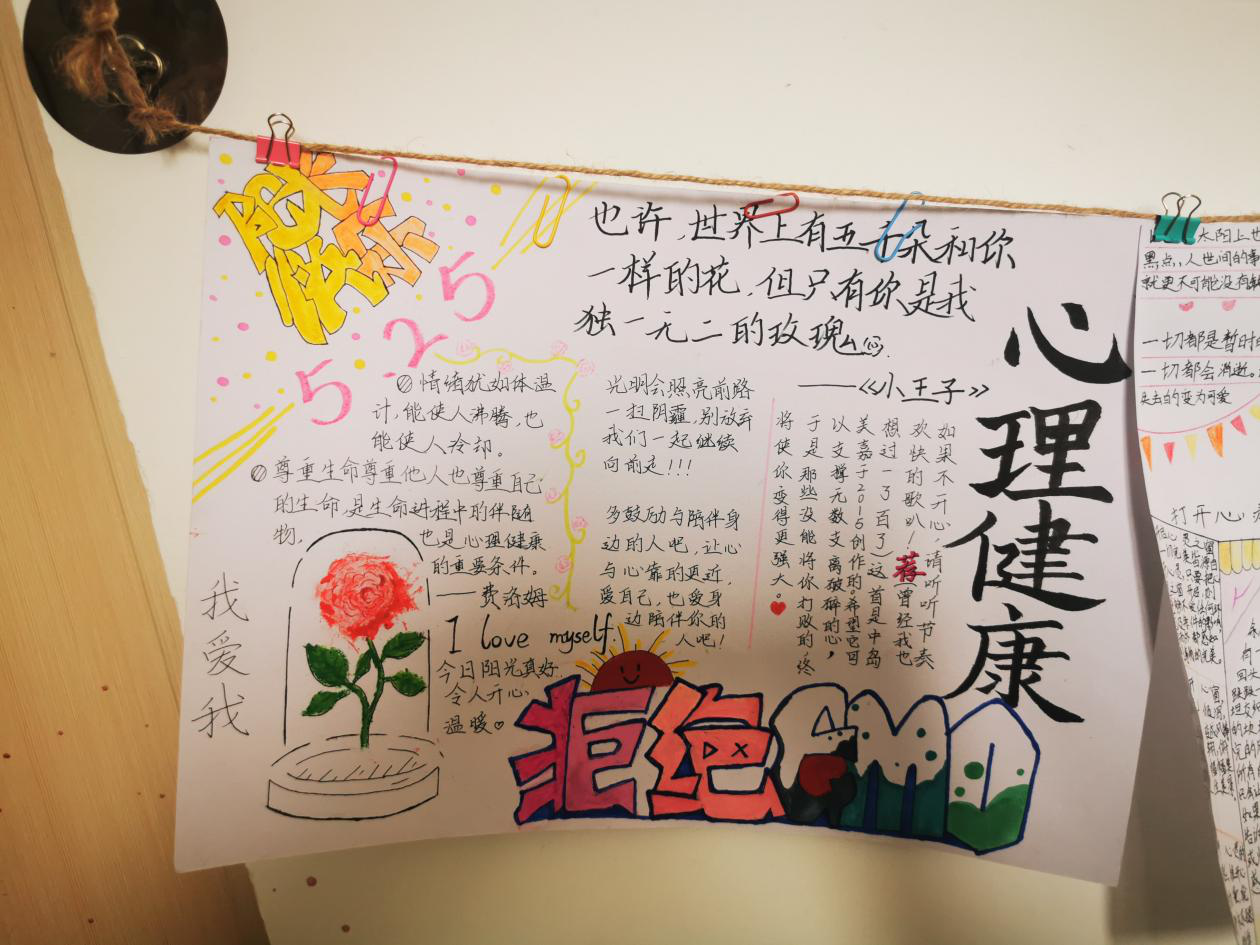 5 25
也许,世界上有五千朵和你
一样的花,但只有你是我
独一无二的玫瑰
——《小王子》
心理健康
情绪犹如体温
计,能使人沸腾,也
能使人冷却。
尊重生命尊重他人也尊重自己
的生命,是生命进程中的伴随
物,也是心理健康
的重要条件。
——费洛姆
光明会照亮前路
一扫阴霾,别放弃
我们一起继续
向前走!!!
多鼓励与陪伴身
边的人吧,让心
与心靠的更近,
爱自己,也爱身
边陪伴你的
人吧!
如果不开心,请听听节奏
欢快的歌叭!(荐曾经我也
想过一了百了)这首是中岛
美嘉于2015创作的。希望它可
以支撑无数支离破碎的心,
于是那些没能将你打败的,终
将使你变得更强大。
我爱我
I love myself.
今日阳光真好
令人开心
温暖
拒绝EMO
太阳上也
黑点,人世间的事
就更不可能没有缺
一切都是暂时的
一切都会消逝。
失去的变为可爱
打开心